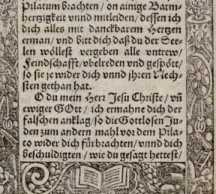 Pilatum brachten / on ainige Barm-
hertzigkeit vnnd mitleiden / dessen ich
dich alles mit danckbarem Hertzen
erman / vnd bitt dich daß du der See-
len wöllest vergeben alle vntrew /
Feindschafft / vbelreden vnd gespött /
so sie je wider dich vnnd jhren Nech-
sten gethan hat.
O du mein Herr Jesu Christe / vñ
ewiger GOtt / ich ermahne dich der
falschen anklag / so die Gottlosen Ju-
den zum andern mahl vor dem Pila-
to wider dich fürbrachten / vnnd dich
beschuldigten / wie du gesagt hettest /